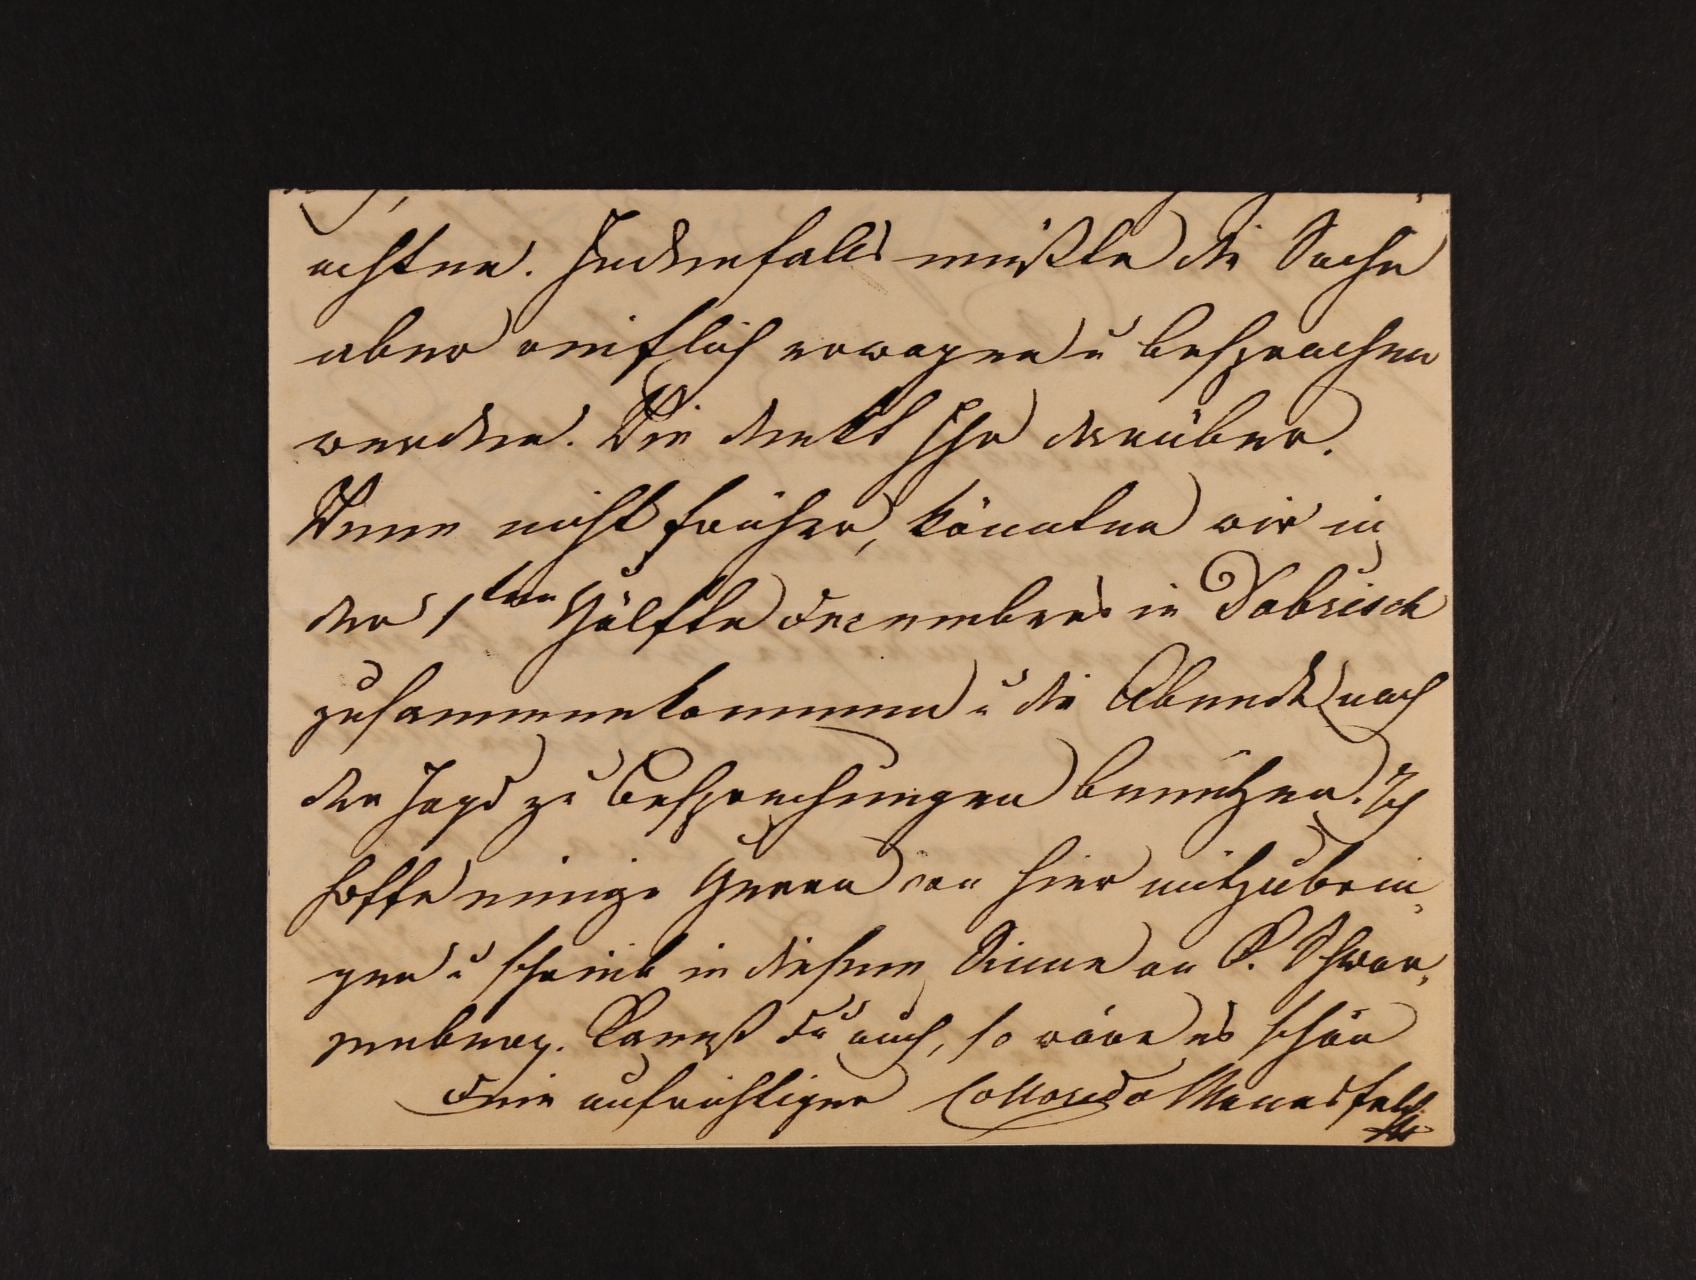 achten. Jedenfalls müßte die Sache
aber reiflich erwogen u besprochen
werden. Wie denkt Ihr darüber.
Wenn nicht früher, könnten wir in
der 1ten Hälfte Decembers in Dobrisch
zusammenkommen u die Abende nach
der Jagd zu Besprechungen benützen. Ich
hoffe einige Herren von hier mitzubrin„
gen u schrieb in diesem Sinne an C. Schwar„
zenberg. Kannst Du auch, so wäre es schön
Dein aufrichtiger Colloredo Mannsfeld